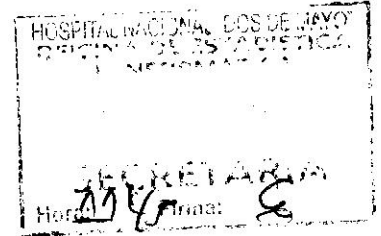 HOSPITAL NACIONAL "DOS DE MAYO"
OFICINA DE ESTADISTICA
E INFORMATICA
SECRETARIA
Hora: Firma: